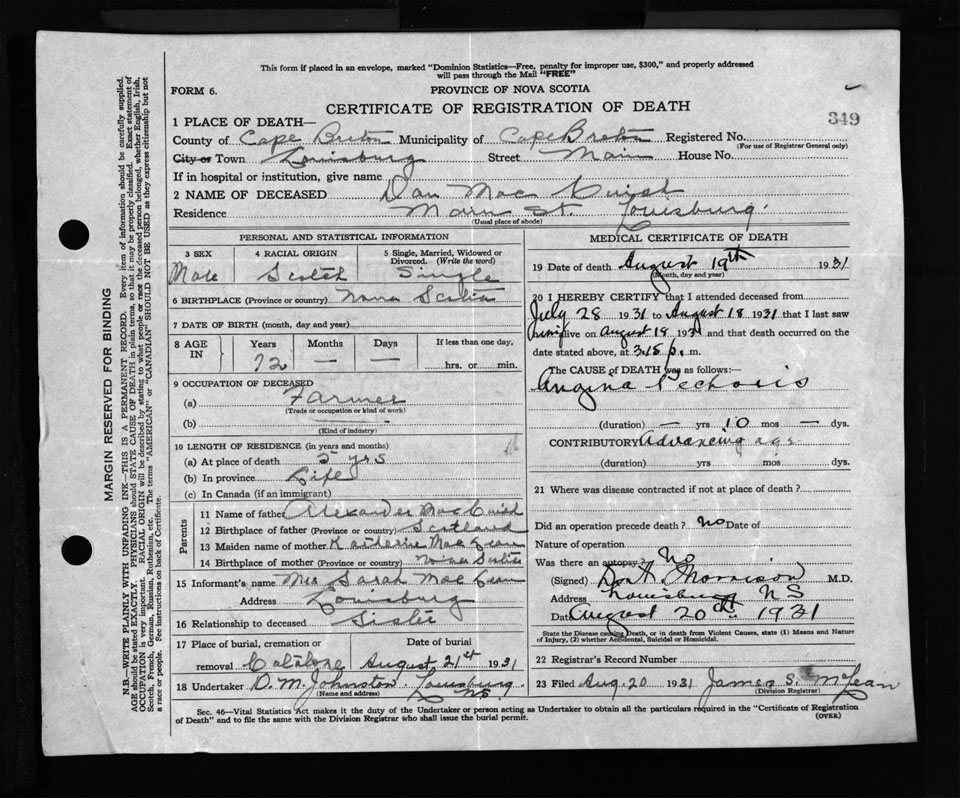 This form if placed in an envelope, marked "Dominion Statistics—Free, penalty for improper use, $300," and properly addressed
will pass through the Mail "FREE"
FORM 6.
PROVINCE OF NOVA SCOTIA
CERTIFICATE OF REGISTRATION OF DEATH
349
1 PLACE OF DEATH—
County of Cape Breton Municipality of Cape Breton Registered No.
(For use of Registrar General only)
City or Town Louisburg Street Main House No.
If in hospital or institution, give name
2 NAME OF DECEASED Dan Mac Cuish
Residence Main St. Louisburg
(Usual place of abode)
PERSONAL AND STATISTICAL INFORMATION
3 SEX
4 RACIAL ORIGIN
5 Single, Married, Widowed or
Divorced. (Write the word)
Male Scotch Single
6 BIRTHPLACE (Province or country) Nova Scotia
7 DATE OF BIRTH (month, day and year)
8 AGE IN
Years Months Days If less than one day,
72 — — hrs. or min.
9 OCCUPATION OF DECEASED
(a) Farmer
(Trade or occupation or kind of work)
(b)
(Kind of industry)
10 LENGTH OF RESIDENCE (in years and months)
(a) At place of death 5 yrs
(b) In province Life
(c) In Canada (if an immigrant)
Parents
11 Name of father Alexander Mac Cuish
12 Birthplace of father (Province or country) Scotland
13 Maiden name of mother Katherine MacLean
14 Birthplace of mother (Province or country) Nova Scotia
15 Informant's name Mrs Sarah MacLean
Address Louisburg
16 Relationship to deceased Sister
17 Place of burial, cremation or Date of burial
removal Catalone August 21st 1931
18 Undertaker D. M. Johnston Louisburg
(Name and address) NS
MEDICAL CERTIFICATE OF DEATH
19 Date of death August 19th 1931
(Month, day and year)
20 I HEREBY CERTIFY that I attended deceased from
July 28 1931 to August 18 1931 that I last saw
him alive on August 18 1931 and that death occurred on
date stated above, at 3.15 p. m.
The CAUSE of DEATH was as follows:—
Angina Pectoris
(duration) — yrs 10 mos — dys.
CONTRIBUTORY Advancing age
(duration) yrs. mos. dys.
21 Where was disease contracted if not at place of death?
Did an operation precede death? No Date of
Nature of operation
Was there an autopsy? No
(Signed) Morrison M.D.
Address Louisburg NS
Date August 20th 1931
State the Disease causing Death, or in death from Violent Causes, state (1) Means and Nature
of Injury, (2) whether Accidental, Suicidal or Homicidal.
22 Registrar's Record Number
23 Filed Aug. 20 1931 James S. McLean
(Division Registrar)
Sec. 46—Vital Statistics Act makes it the duty of the Undertaker or person acting as Undertaker to obtain all the particulars required in the "Certificate of Registration
of Death" and to file the same with the Division Registrar who shall issue the burial permit.
(OVER)
MARGIN RESERVED FOR BINDING
N.B.—WRITE PLAINLY WITH UNFADING INK—THIS IS A PERMANENT RECORD. Every item of information should be carefully supplied.
AGE should be stated EXACTLY. PHYSICIANS should STATE CAUSE OF DEATH in plain terms, so that it may be properly classified. Exact statement of
OCCUPATION is very important. RACIAL ORIGIN will be described by stating to what people or race the deceased person belonged, whether English, Irish,
Scotch, French, German, Russian, Ruthenian, etc. The terms "AMERICAN" or "CANADIAN" SHOULD NOT BE USED as they express citizenship but not
a race or people. See instructions on back of Certificate.